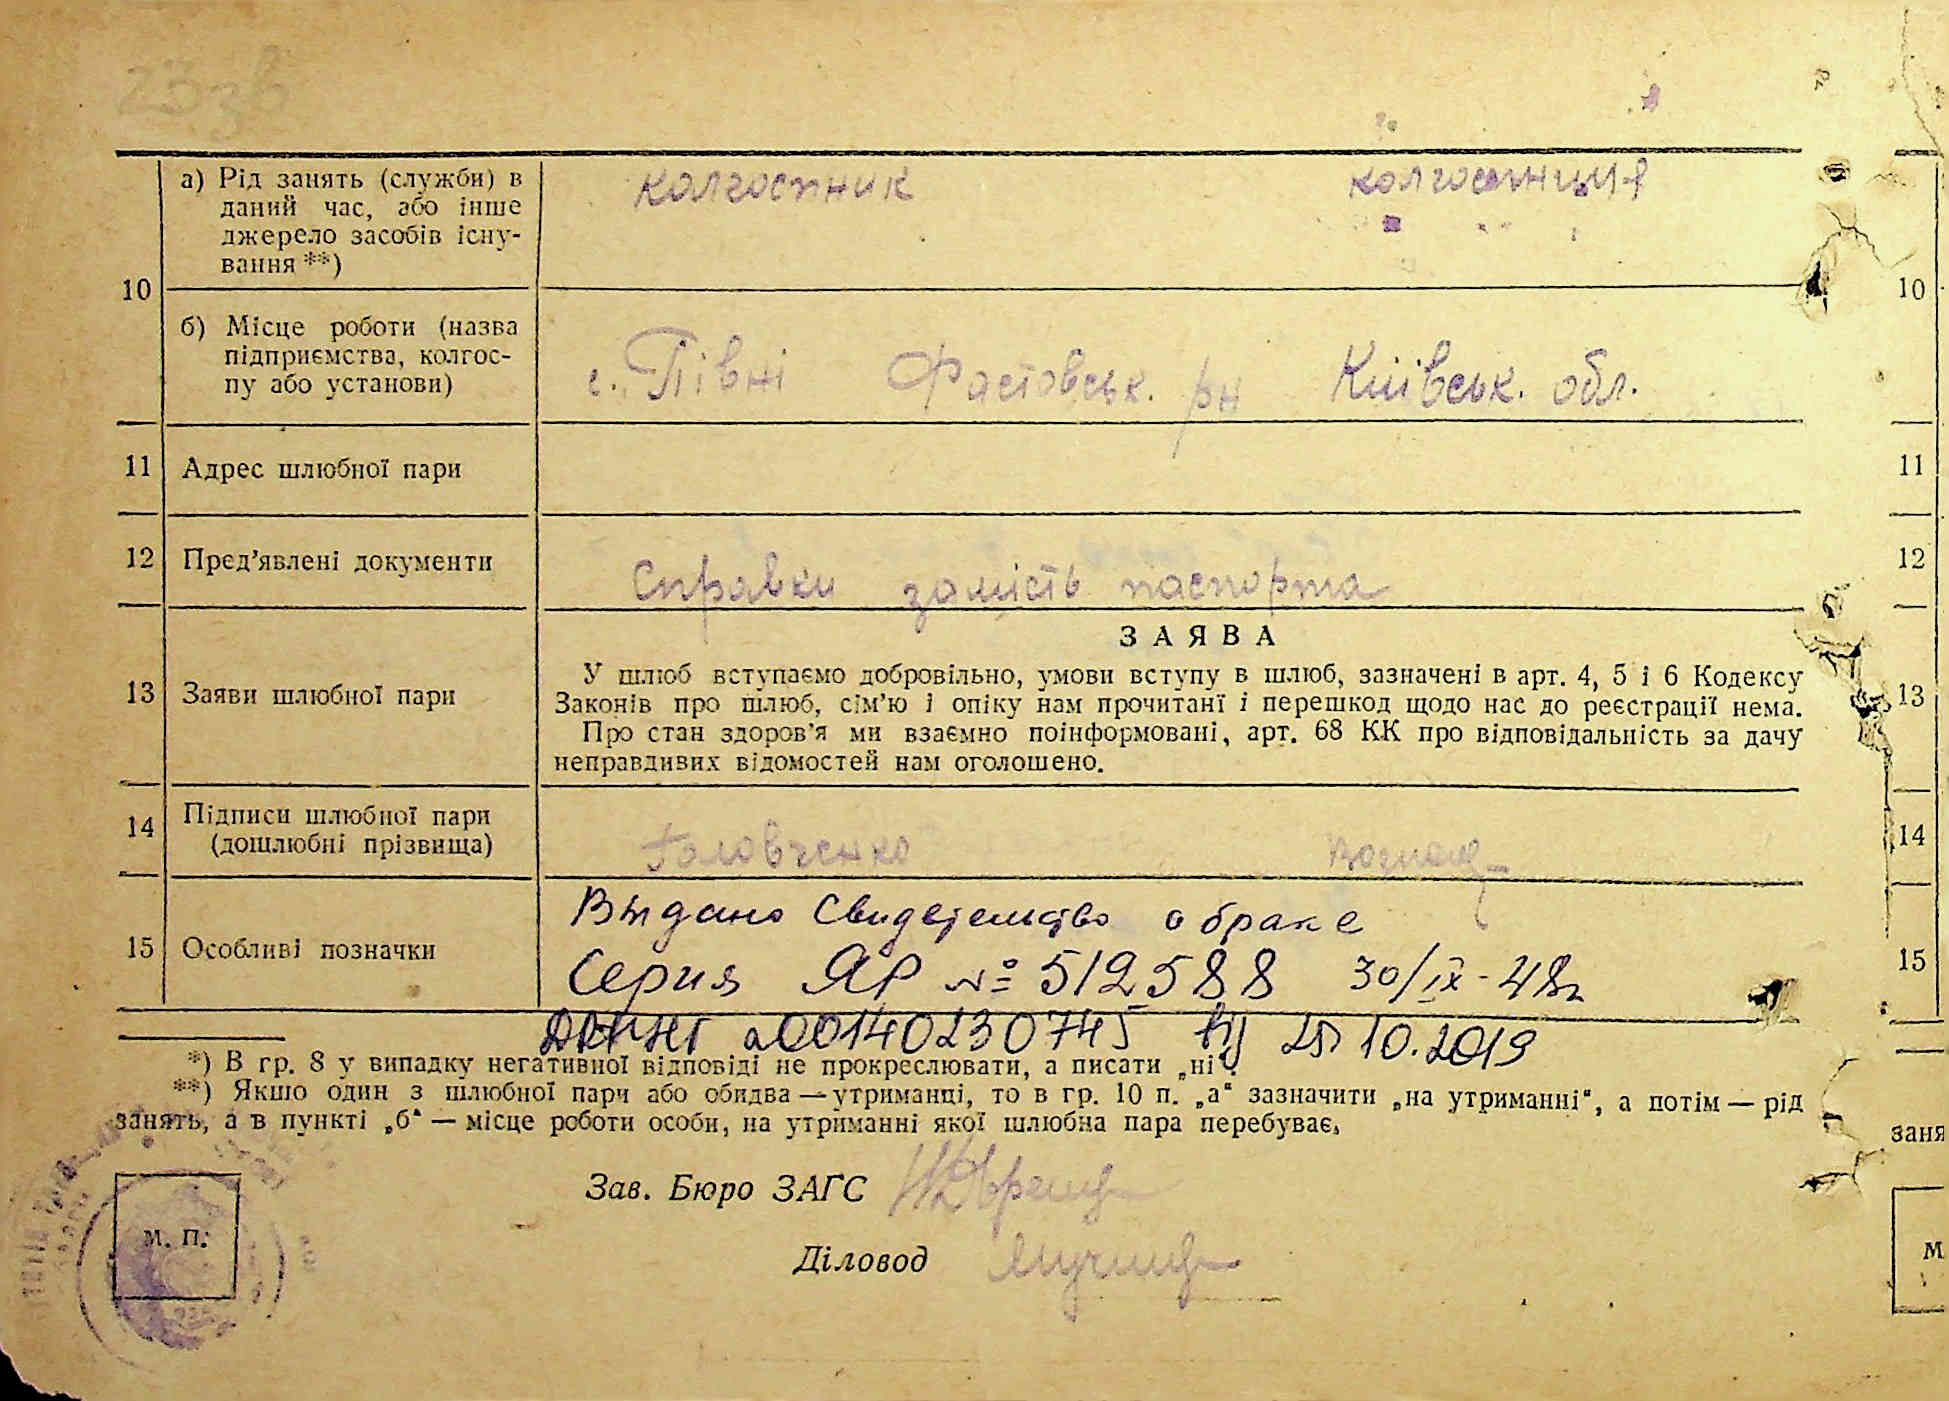 23 зв
10
а) Рід занять (служби) в даний час, або інше джерело засобів існування **)
колгоспник
колгоспниця
10
б) Місце роботи (назва підприємства, колгоспу або установи)
с. Півні Фастовськ. рн Київськ. обл.
11 Адрес шлюбної пари
11
12 Пред'явлені документи
Справки замість паспорта
12
ЗАЯВА
13 Заяви шлюбної пари
У шлюб вступаємо добровільно, умови вступу в шлюб, зазначені в арт. 4, 5 і 6 Кодексу
Законів про шлюб, сім'ю і опіку нам прочитані і перешкод щодо нас до реєстрації нема.
Про стан здоров'я ми взаємно поінформовані, арт. 68 КК про відповідальність за дачу
неправдивих відомостей нам оголошено.
13
14 Підписи шлюбної пари
(дошлюбні прізвища)
Головченко
14
15 Особливі позначки
Выдано Свидетельство о браке
Серия ЯР № 512588 30/IX-48г
15
00140230745 від 25 10.2019
*) В гр. 8 у випадку негативної відповіді не прокреслювати, а писати „ні".
**) Якшо один з шлюбної пари або обидва — утриманці, то в гр. 10 п. „а" зазначити „на утриманні", а потім — рід
занять, а в пункті „б" — місце роботи особи, на утриманні якої шлюбна пара перебуває.
заня
Зав. Бюро ЗАГС
м. п.
Діловод
м